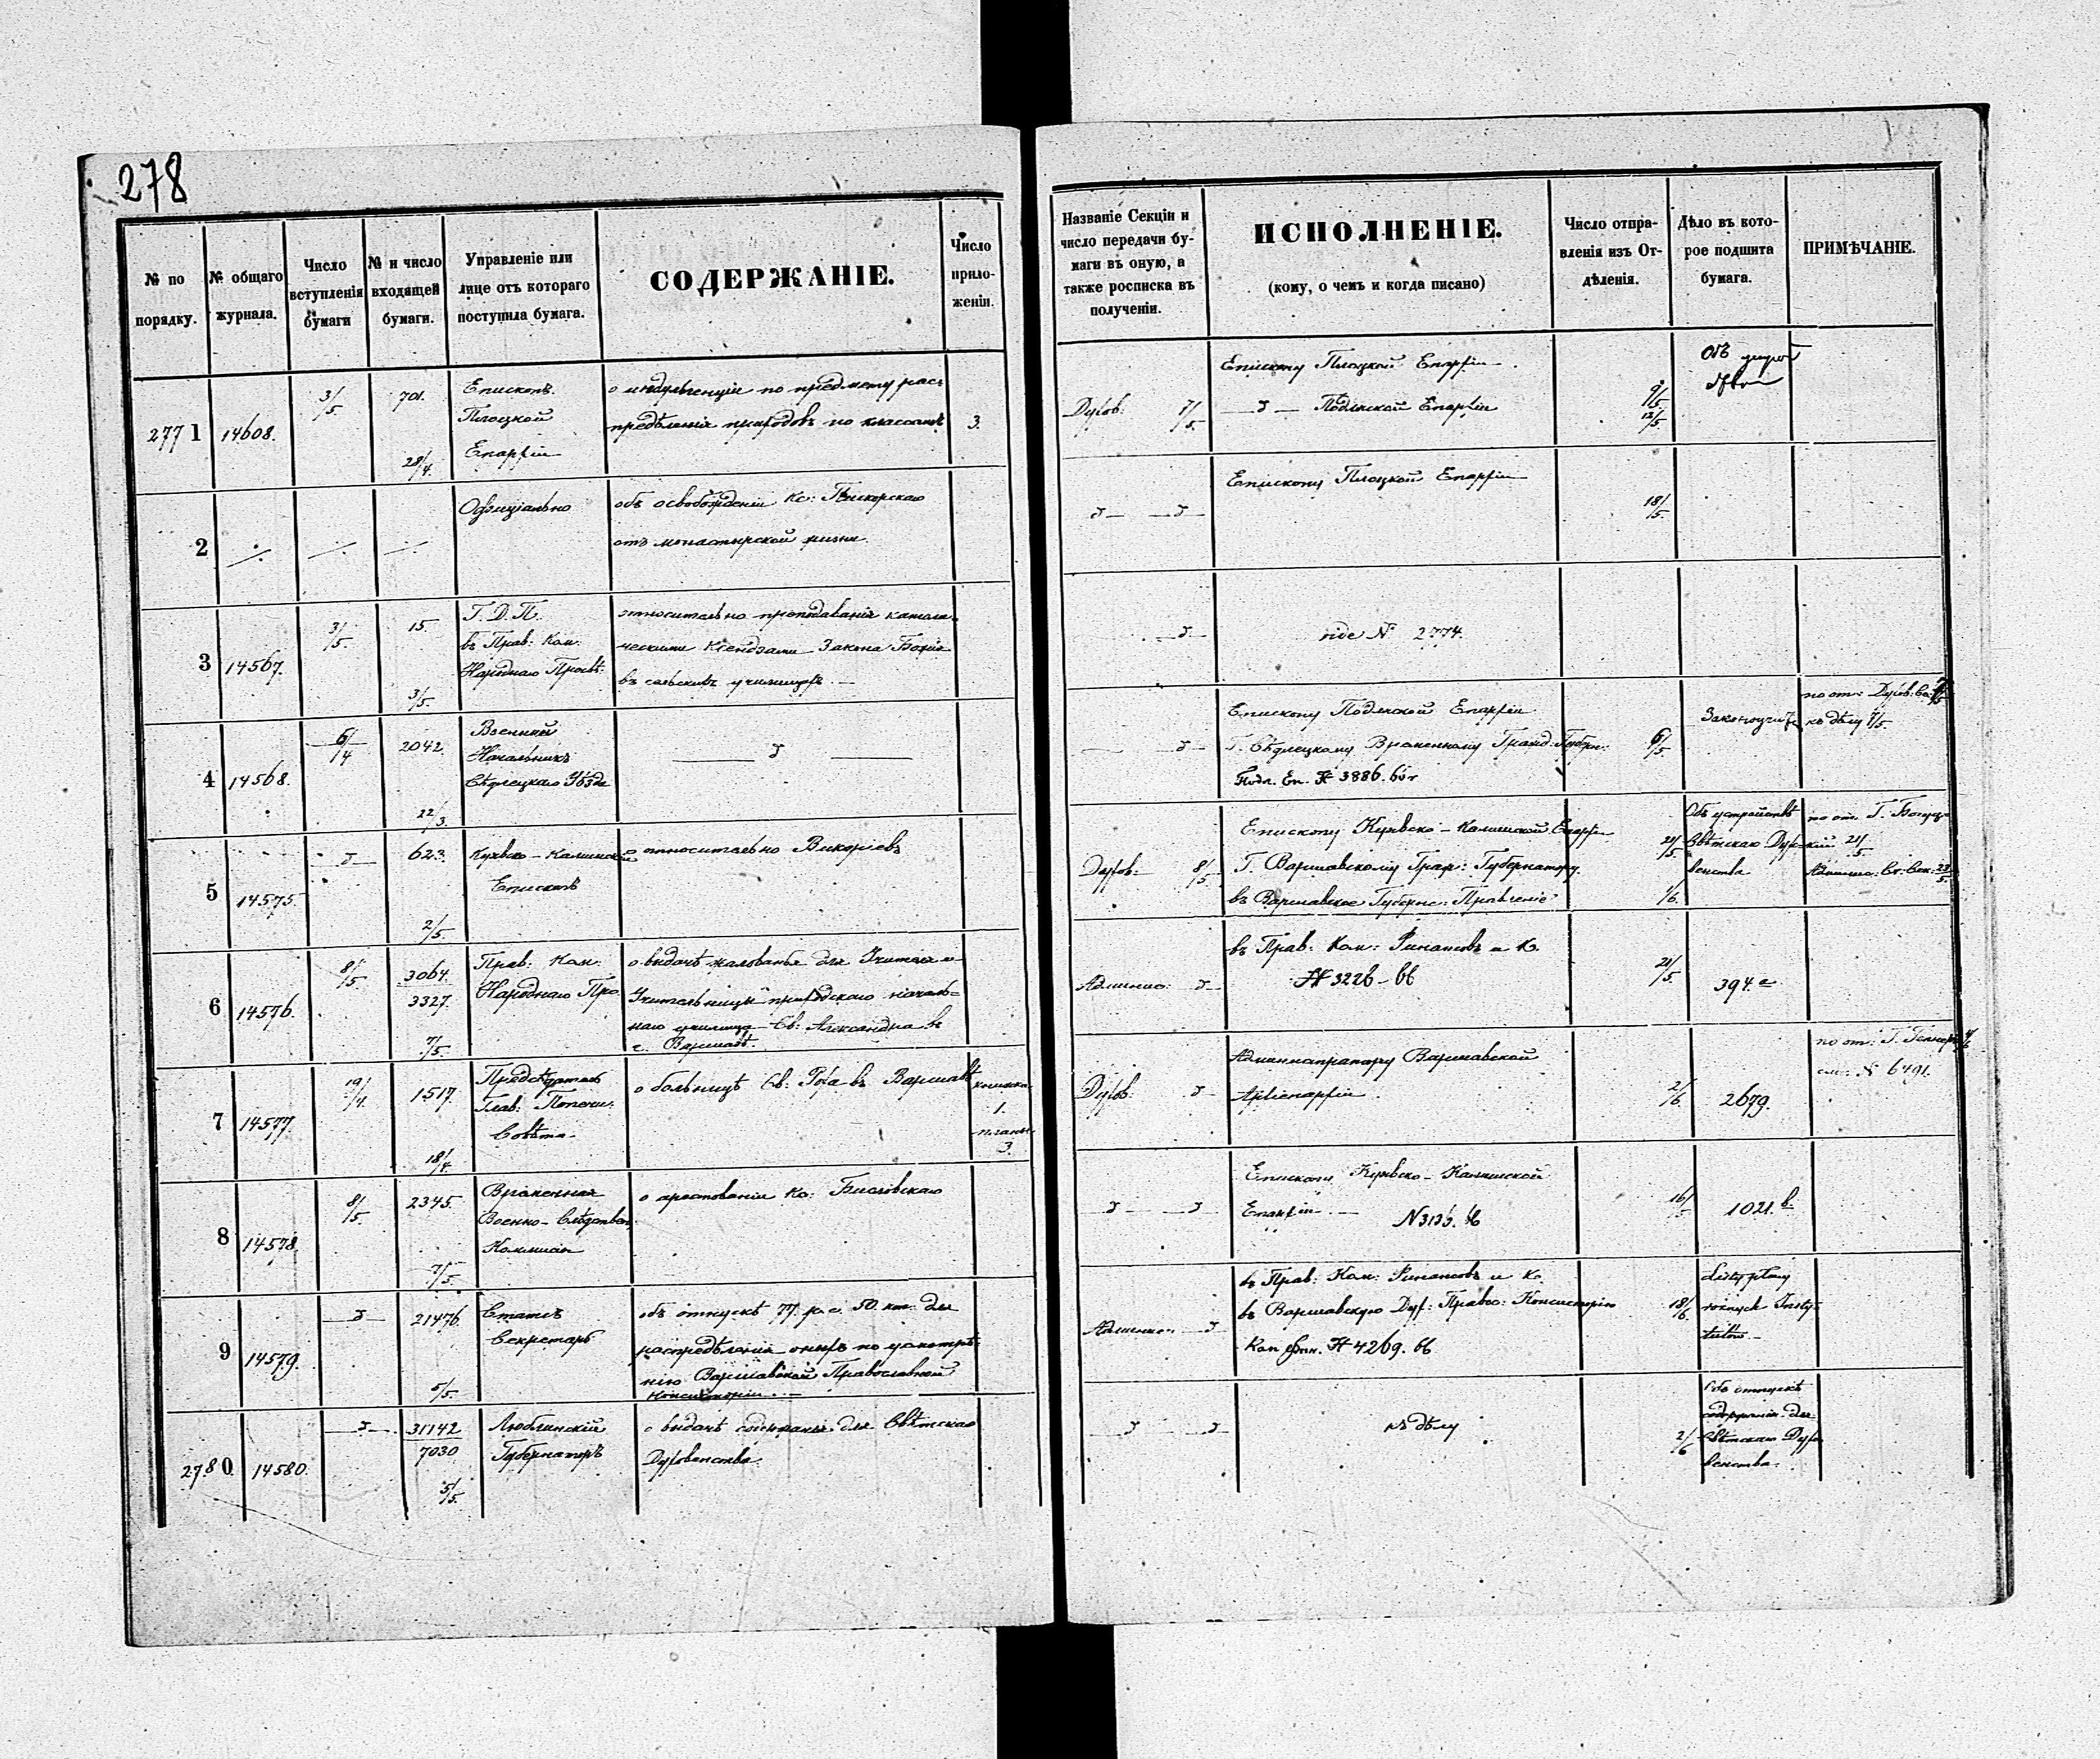 278
№ по порядку.
№ общаго журнала.
Число вступленія бумаги
№ и число входящей бумаги.
Управленіе или лице отъ котораго поступила бумага.
СОДЕРЖАНІЕ.
Число приложеніи.
Названіе Секціи и число передачи бумаги въ оную, а также росписка въ полученіи.
ИСПОЛНЕНІЕ.
(кому, о чемъ и когда писано)
Число отправленія изъ Отдѣленія.
Дѣло въ которое подшита бумага.
ПРИМѢЧАНІЕ.
2771
14608.
3/5
701.
28/4.
Епископъ
Плоцкой
Епархіи
о индульгенціи по предмету рас-
предѣленія приходовъ по классамъ
3.
Духов: 7/5.
Епископу Плоцкой Епархіи.
Подляской Епархіи
9/5
12/5.
Объ
2
Официально
объ освобожденіи Кс:
отъ монастырской жизни.
Епископу Плоцкой Епархіи
18/5.
3
14567.
3/5.
15.
3/5.
Г. Д. П.
въ Прав: Ком:
Народнаго Просвѣ:
относительно преподаванія католи-
ческими Ксендзами Закона Божія
въ сельскихъ училищахъ
vide N 2774.
4
14568.
6/4
2042.
22/3.
Военный
Начальникъ
Сѣдлецкаго Уѣзда
Епископу Подляской Епархіи.
Г. Сѣдлецкому Временному Гражд: Губерн:
Подл. Еп. № 3886.
6/5.
по от: Духов:
къ дѣлу 7/5
5
14575.
623.
2/5.
Куявско-Калишской
Епископъ
относительно Викаріевъ
Духов: 8/5.
Епископу Куявско-Калишской Епархіи
Г. Варшавскому Граж: Губернатору.
въ Варшавское Губерн: Правленіе
21/5.
1/6.
Объ устройствѣ
Свѣтскаго Духо-
венства
по от: Г.
21/5.
6
14576.
8/5.
3064.
3327.
7/5.
Прав: Ком:
Народнаго Про.
о выдачѣ жалованья для Учителя и
Учительницы приходскаго началь-
наго училища Св: Александра въ
г. Варшавѣ.
Админис:
въ Прав: Ком: Финансовъ и К.
№ 3226-66
21/5.
394.
7
14577.
19/4.
1517.
18/4.
Предсѣдатель
Глав: Попечи:
Совѣта
о больницѣ Св: Роха въ Варшавѣ
книжка
1.
планы
3.
Духов:
Администратору Варшавской
Архіепархіи
2/6.
2679.
по от: Г.
см: N 6491.
8
14578.
8/5.
2345.
7/5.
Временная
Военно-Слѣдствен.
Коммисія
о арестованіи Кс:
Епископу Куявско-Калишской
Епархіи
16/
1021.
9
14579.
21476.
5/5.
Статсъ
Секретарь
объ отпускѣ 77. р. с. 50. к. для
распредѣленія оныхъ по усмотрѣ-
нію Варшавской Православной
Консисторіи
въ Прав: Ком: Финансовъ и К.
въ Варшавскую Дух: Правос: Консисторію
№ 4269. 66
18/6.
Listy płacy
różnych Insty-
tutów
2780.
14580.
31142
7030
5/5.
Люблинскій
Губернаторъ
о выдачѣ содержанія для Свѣтскаго
Духовенства
къ дѣлу
2/6
Объ отпускѣ
содержанія для
Свѣтскаго Духо-
венства.